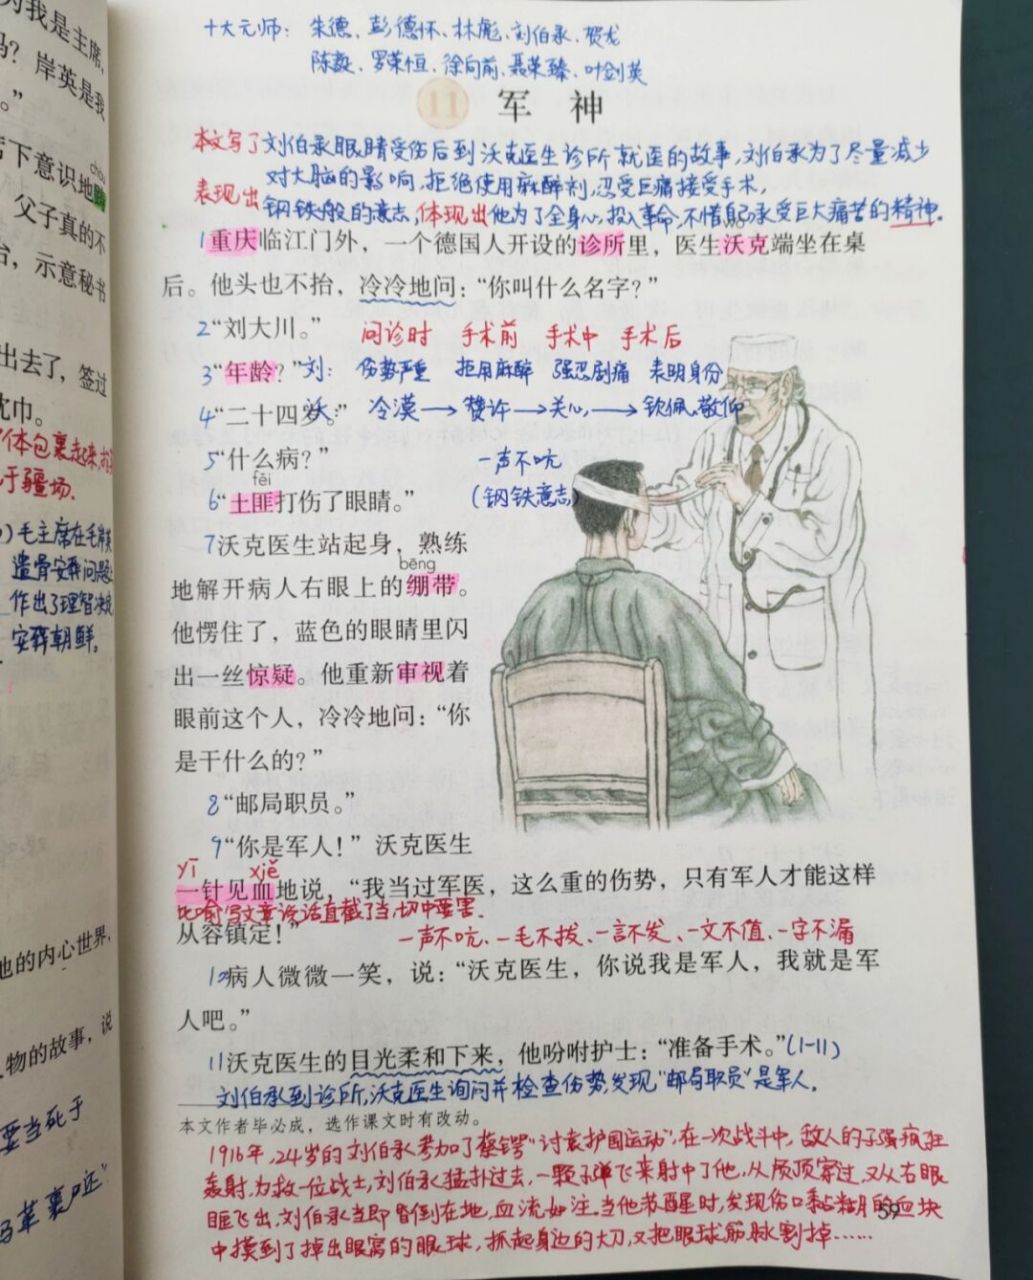 为我是主席,
吗？岸英是我
。”
席下意识地
chóu
父子真的不
台，示意秘书
出去了，签过
枕巾。
体包裹起来
于疆场.
毛主席在毛岸英
遗骨安葬问题上
作出了理智决定
安葬朝鲜。
他的内心世界,
人物的故事，说
要当死于
马革裹尸还"
十大元师：朱德、彭德怀、林彪、刘伯承、贺龙
陈毅、罗荣恒、徐向前、聂荣臻、叶剑英
11 军 神
本文写了刘伯承眼睛受伤后到沃克医生诊所就医的故事,刘伯承为了尽量减少
对大脑的影响,拒绝使用麻醉剂,忍受巨痛接受手术,
表现出钢铁般的意志,体现出他为了全身心投入革命,不惜自己承受巨大痛苦的精神.
wò
1重庆临江门外，一个德国人开设的诊所里，医生沃克端坐在桌
后。他头也不抬，冷冷地问：“你叫什么名字？”
2“刘大川。” 问诊时 手术前 手术中 手术后
3“年龄？”刘：伤势严重 拒用麻醉 强忍剧痛 表明身份
4“二十四岁。”沃：冷漠→赞许→关心→钦佩、敬仰
5“什么病？” 一声不吭
fěi
6“土匪打伤了眼睛。” (钢铁意志)
7沃克医生站起身，熟练
bēng
地解开病人右眼上的绷带。
他愣住了，蓝色的眼睛里闪
出一丝惊疑。他重新审视着
眼前这个人，冷冷地问：“你
是干什么的？”
8“邮局职员。”
9“你是军人！”沃克医生
yī xiě
一针见血地说，“我当过军医，这么重的伤势，只有军人才能这样
比喻写文章说话直截了当,切中要害.
从容镇定！”
一声不吭、一毛不拔、一言不发、一文不值、一字不漏
10病人微微一笑，说：“沃克医生，你说我是军人，我就是军
人吧。”
11沃克医生的目光柔和下来，他吩咐护士：“准备手术。”(1-11)
刘伯承到诊所,沃克医生询问并检查伤势,发现"邮局职员"是军人.
本文作者毕必成，选作课文时有改动。
1916年,24岁的刘伯承参加了蔡锷"讨袁护国运动",在一次战斗中,敌人的子弹疯狂
轰射,为救一位战士,刘伯承猛扑过去,一颗子弹飞来射中了他,从颅顶穿过,又从右眼
眶飞出,刘伯承当即昏倒在地,血流如注.当他苏醒时,发现伤口黏糊的血块
中摸到了掉出眼窝的眼球,抓起身边的大刀,又把眼球筋脉割掉……
59